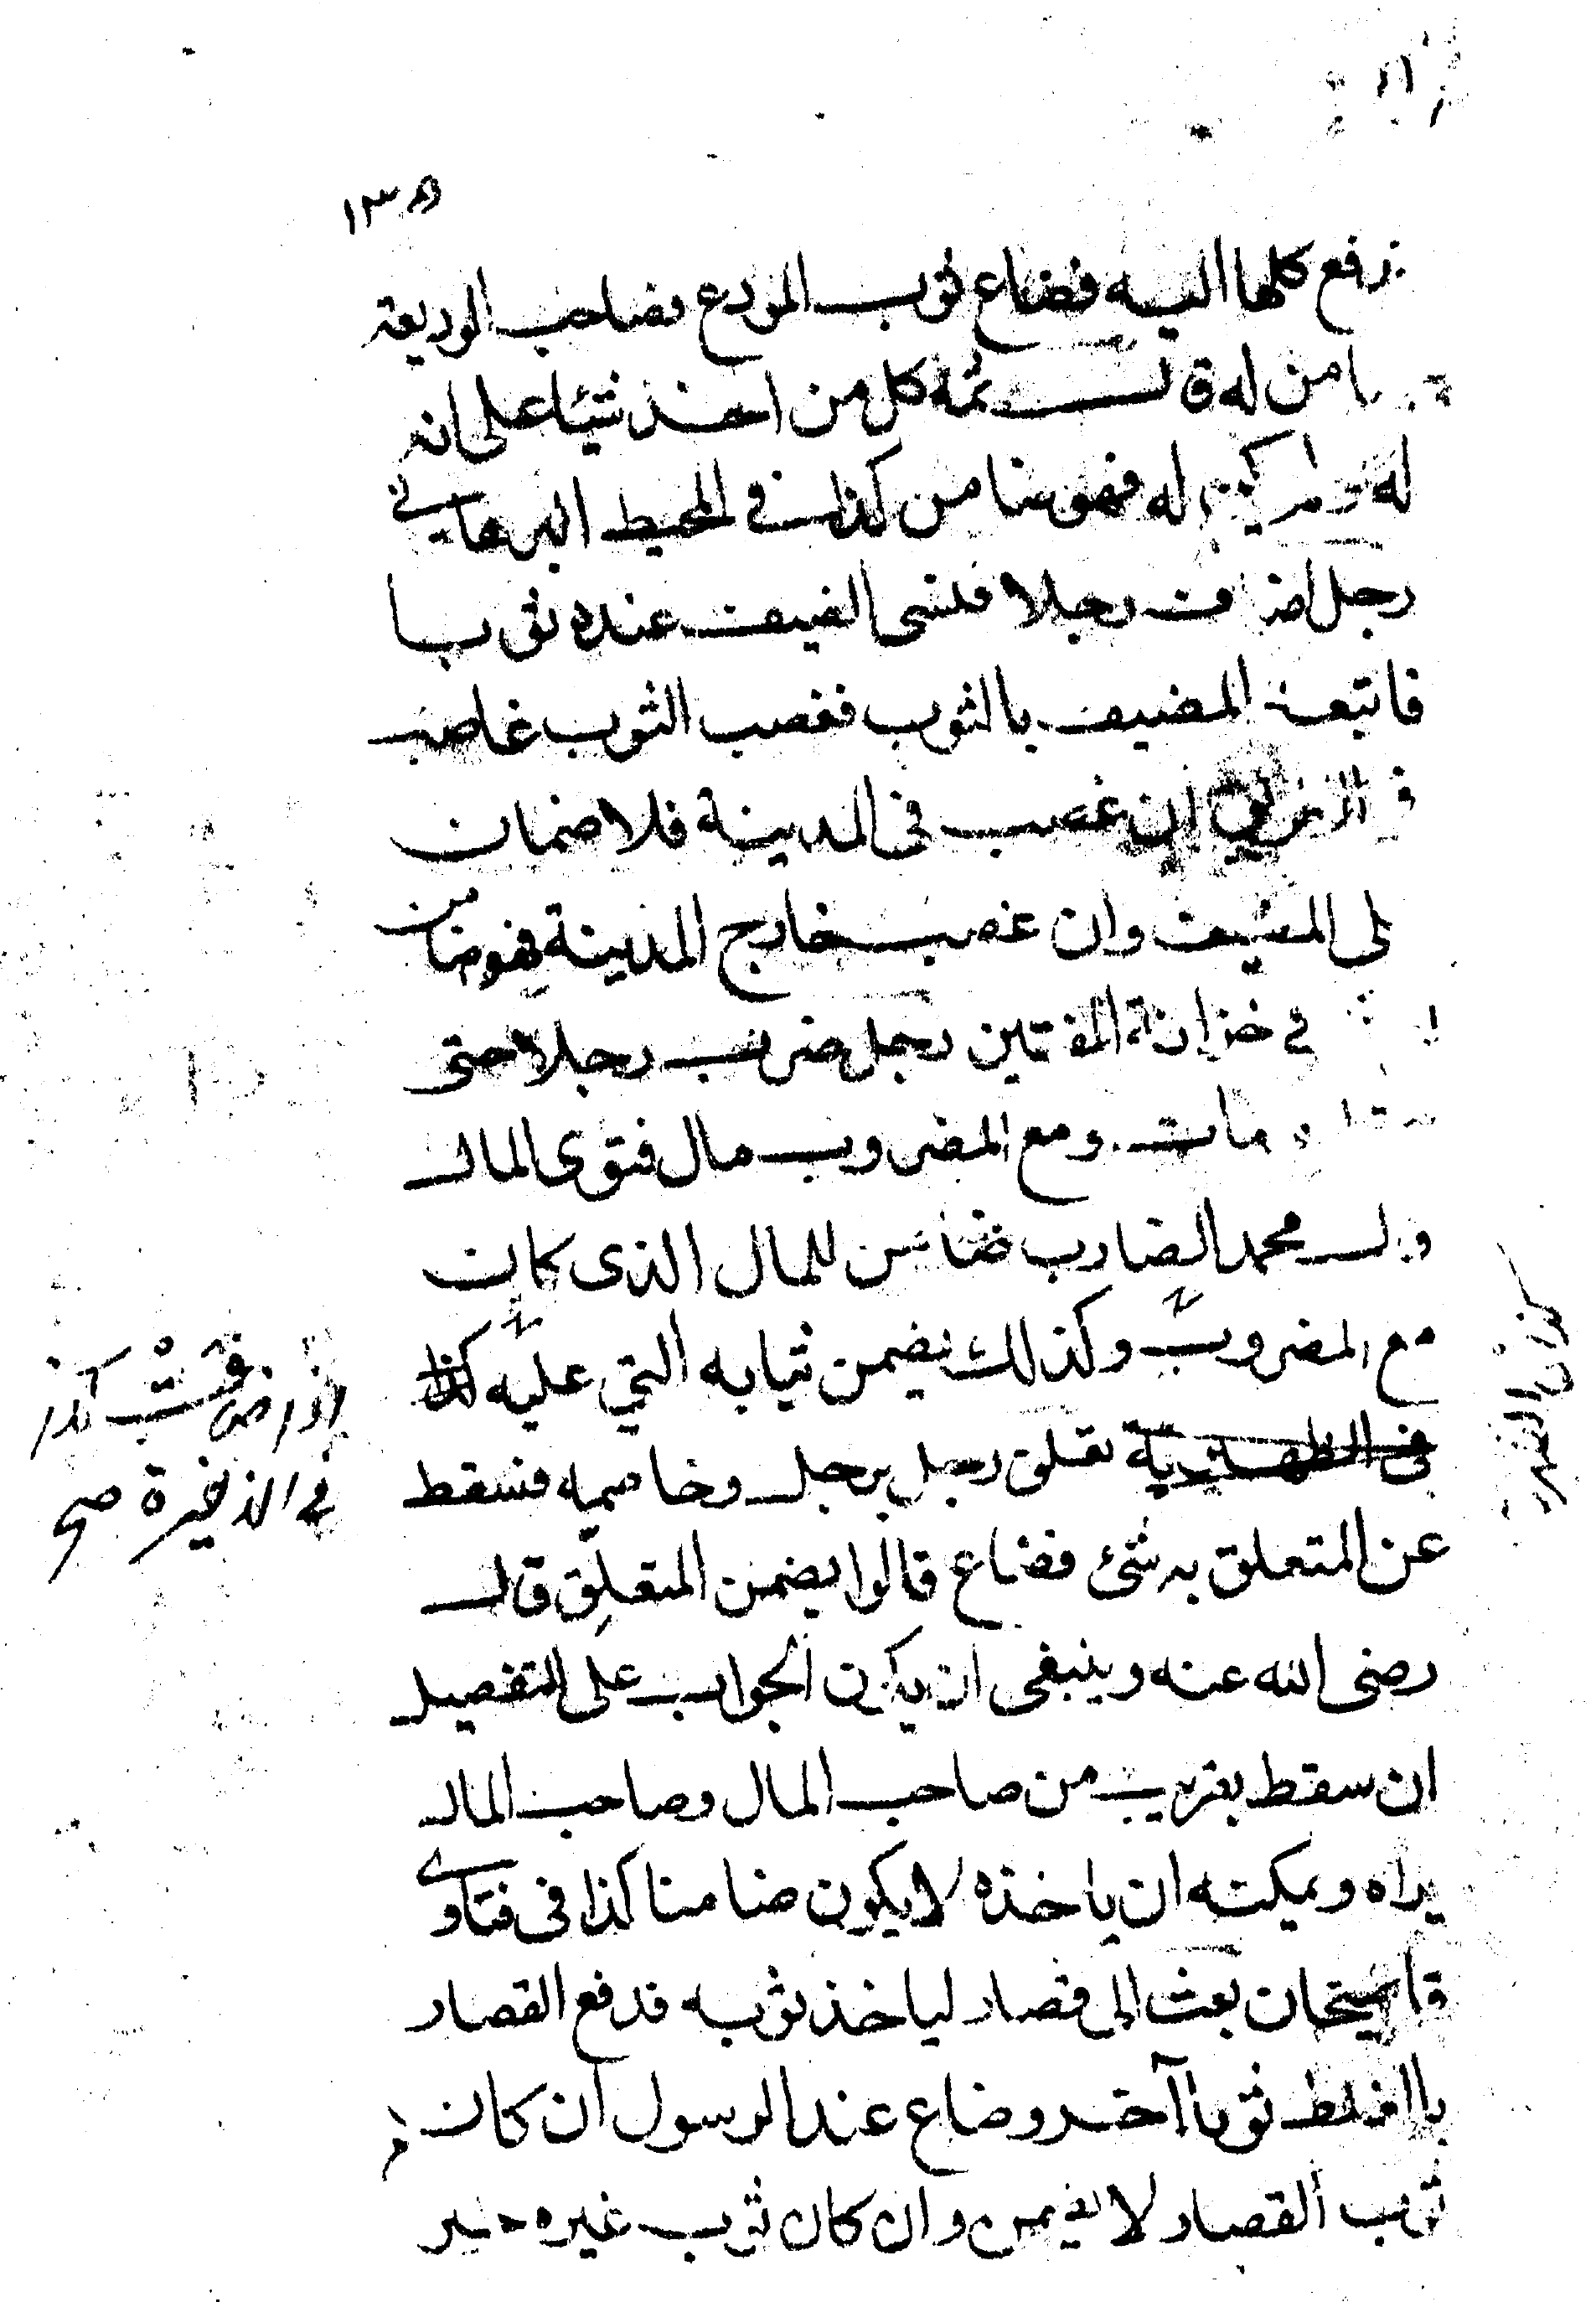 ١٣٥
رفع كلها اليه فضاع ثوب المودع فصاحب الوديعة
ضامن له قال ثمه كل من اخذ شيئا على انه
له ولم يكن له فهو ضامن كذا في المحيط البرهاني
رجل اضاف رجلا فنسى الضيف عنده ثوبا
فاتبعه المضيف بالثوب فغصب الثوب غاصب
في الطريق ان غصب في المدينة فلا ضمان
على المضيف وان غصب خارج المدينة فهو ضامن
في خزانة المفتين رجل ضرب رجلا حتى
مات ومع المضروب مال فتوى المال
قال محمد الضارب ضامن للمال الذى كان
مع المضروب وكذلك يضمن ثيابه التي عليه كذا
في الظهيرية تعلق رجل برجل وخاصمه فسقط
عن المتعلق به شئ فضاع قالوا يضمن المتعلق قال
رضى الله عنه وينبغى ان يكون الجواب على التفصيل
ان سقط بقرب من صاحب المال وصاحب المال
يراه ويمكنه ان ياخذه لا يكون ضامنا كذا فى فتاوى
قاضيخان بعث الى قصار لياخذ ثوبه فدفع القصار
بالغلط ثوبا آخر وضاع عند الرسول ان كان
ثوب القصار لا يضمن وان كان ثوب غيره خير
اذا ضاعت كذا
في الذخيرة صح